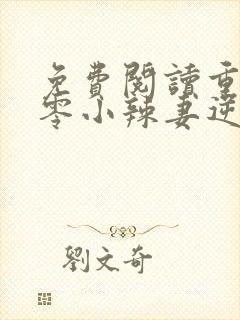 免費閱讀重
零小辣妻逆
劉文奇